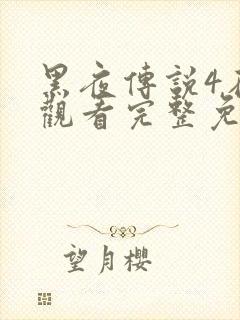 黑夜傳説4
觀看完整免
望月櫻